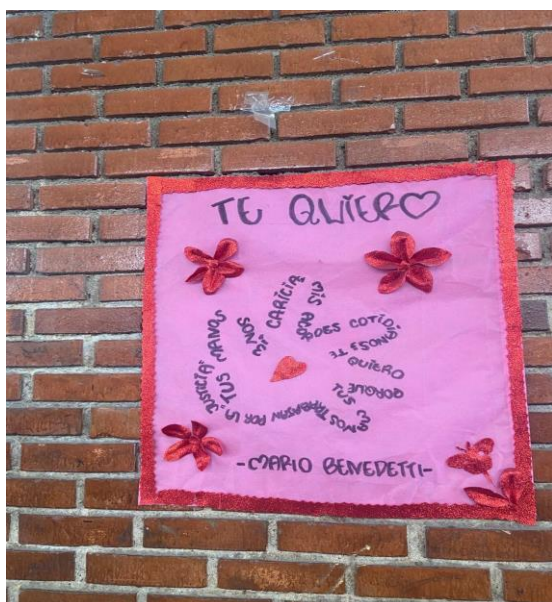 TE QUIERO
TUS MANOS
SON MI CARICIA
MIS ACORDES COTIDI
TE
QUIERO
PORQUE
TUS
MANOS TRABAJAN POR LA JUSTICIA
-MARIO BENEDETTI-